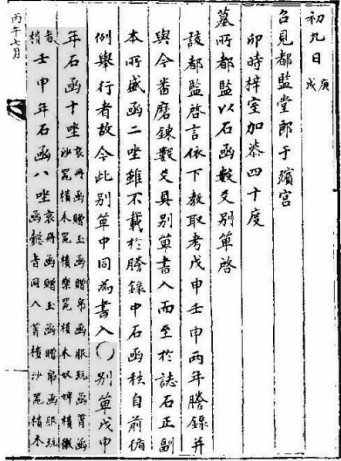 初九日庚戌
召見都監堂郎于殯宮
卯時梓室加漆四十度
墓所都監以石函數爻別單啓
該都監啓言依下教取考戊申壬申兩年謄錄並
與今番磨鍊數爻具別單書入而至於誌石正副
本所盛函二坐雖不載於謄錄中石函秩自前循
例舉行者故今此別單中同為書入 別單戊申
年石函十坐哀冊函贈玉函贈帛函服玩函菁函
沙冕樻樂冕樻木奴婢樻徽
壬申年石函八坐哀冊函贈玉函贈帛函服玩
函菁樻沙冕樻木
丙午七月